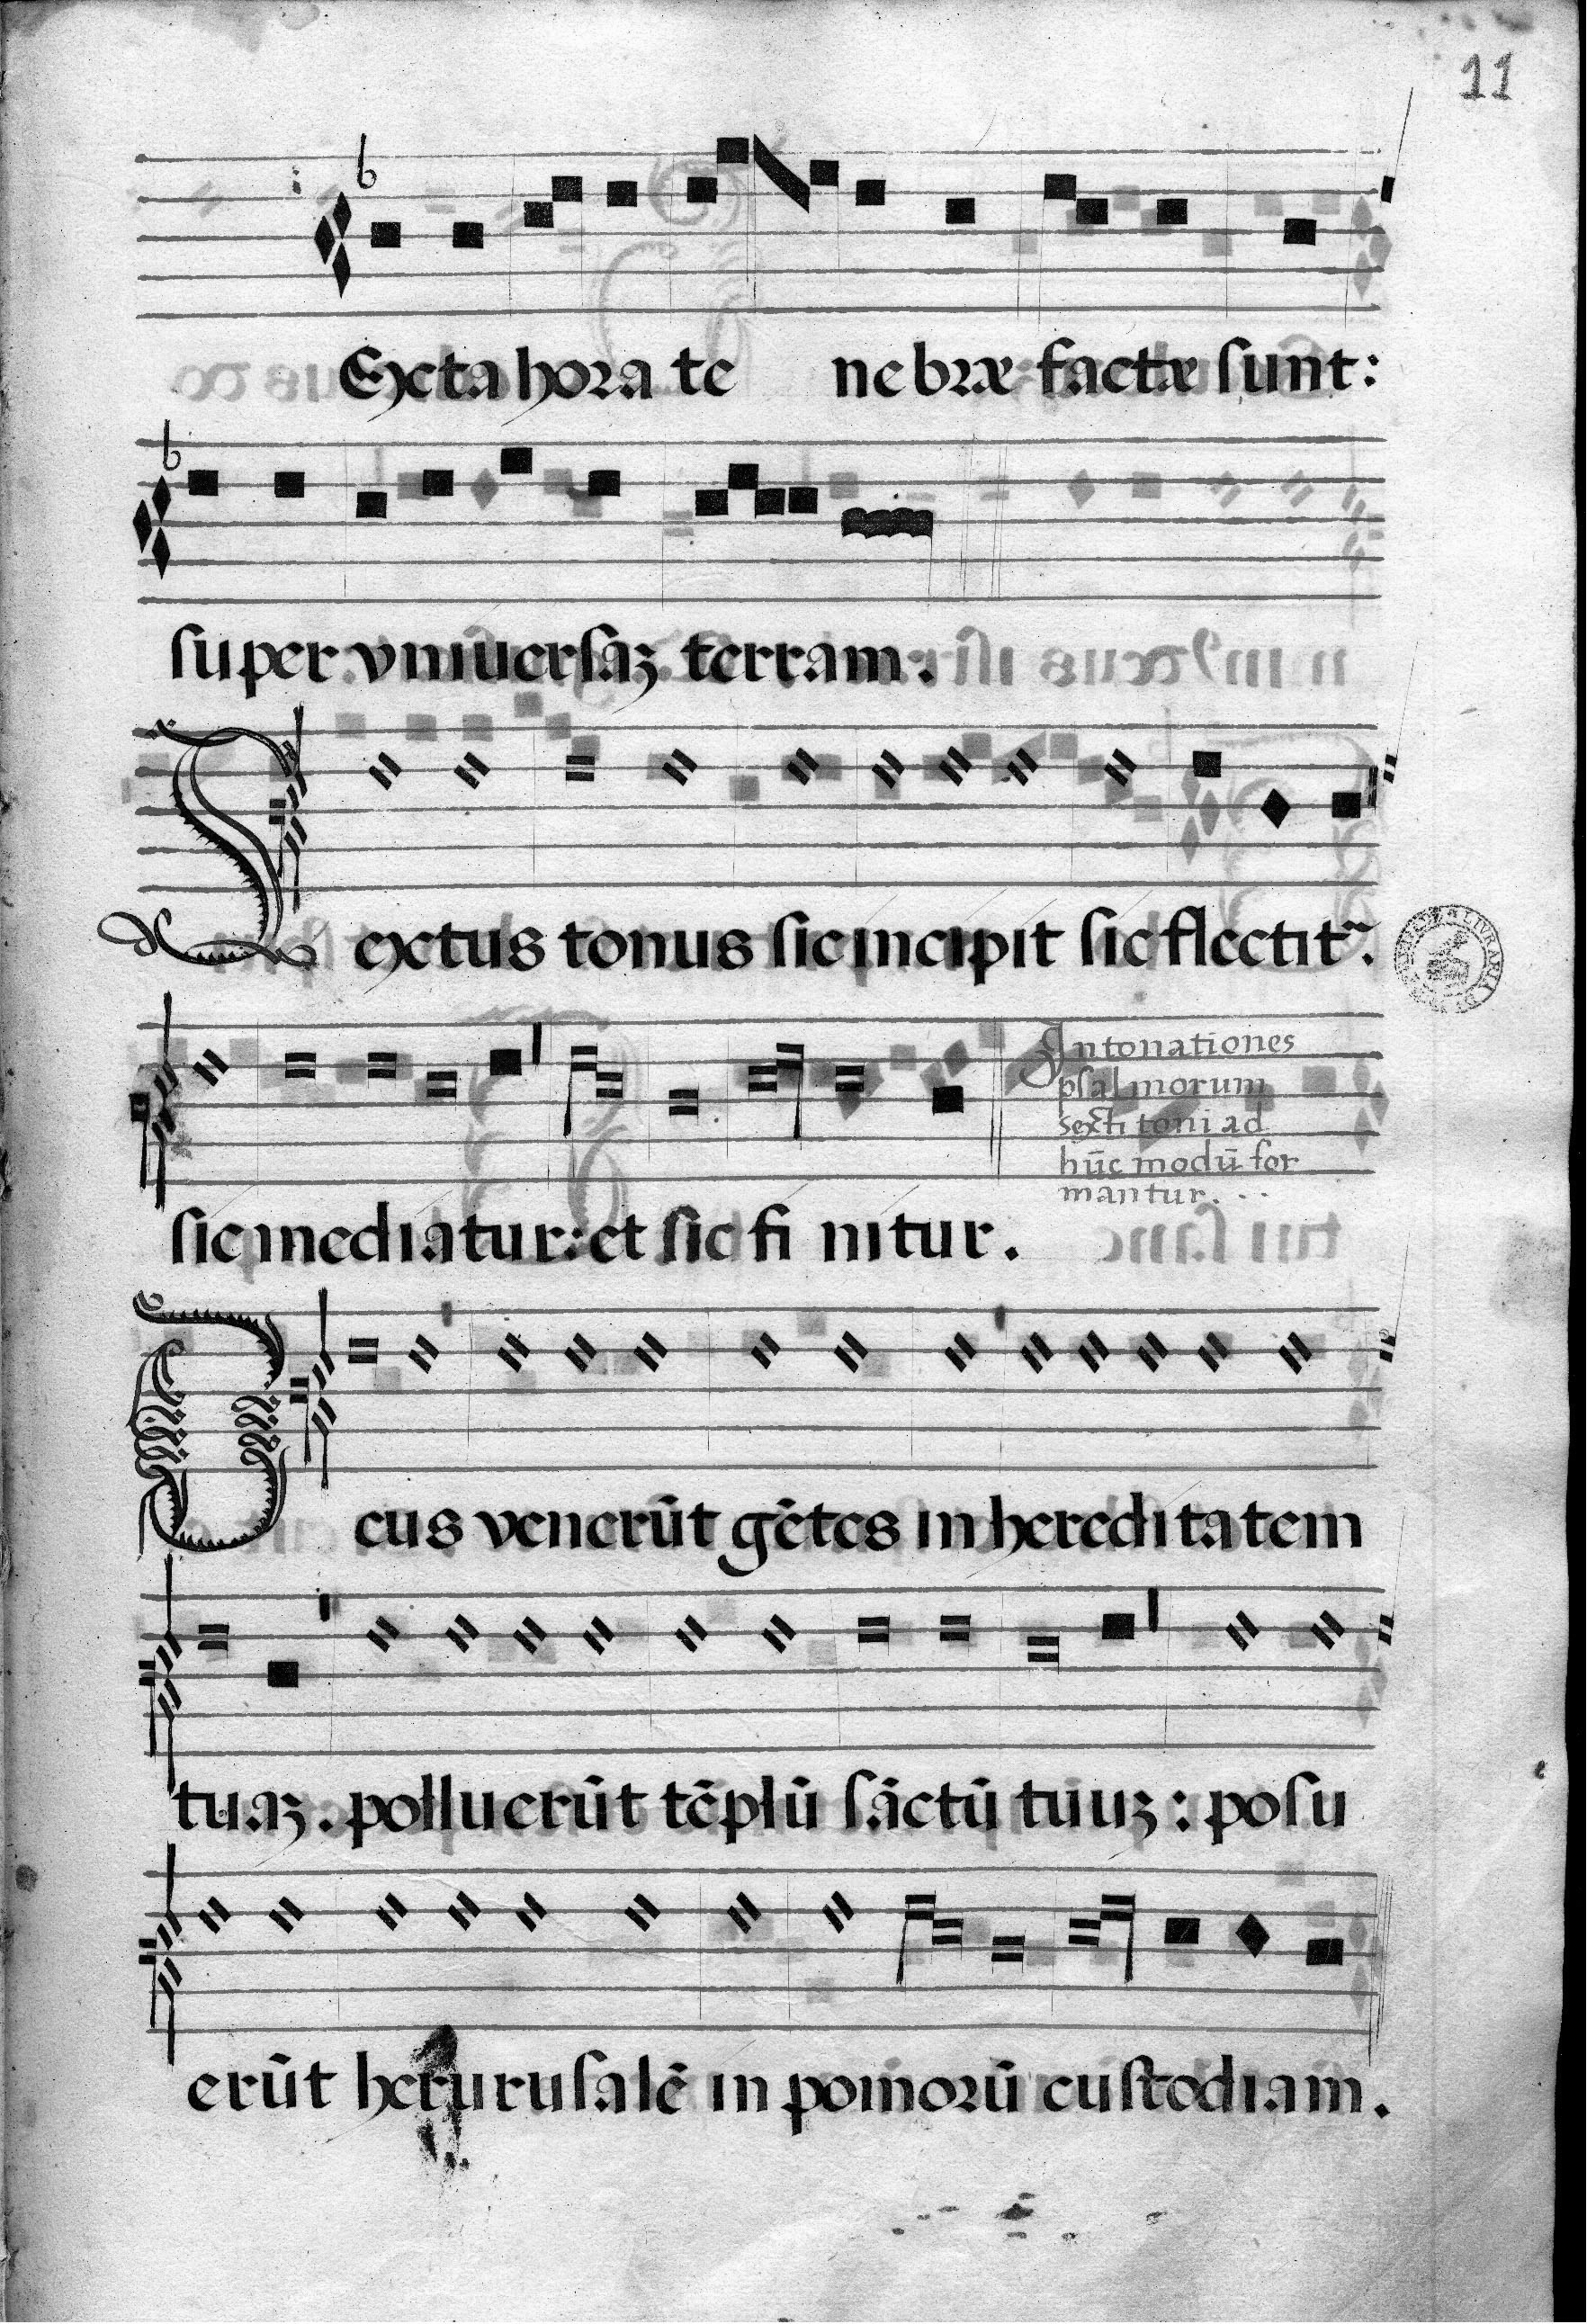 11
Sexta hora te nebræ factæ sunt:
super vniuersaʒ terram:
Sextus tonus sic incipit sic flectit᷑.
sic mediatur: et sic fi nitur.
Intonationes
psalmorum
sexti toni ad
hūc modū for
mantur...
Deus venerūt gētes in hereditatem
tuaʒ. polluerūt tēplū sāctū tuuʒ: posu
erūt herurusalē in pomorū custodiam.